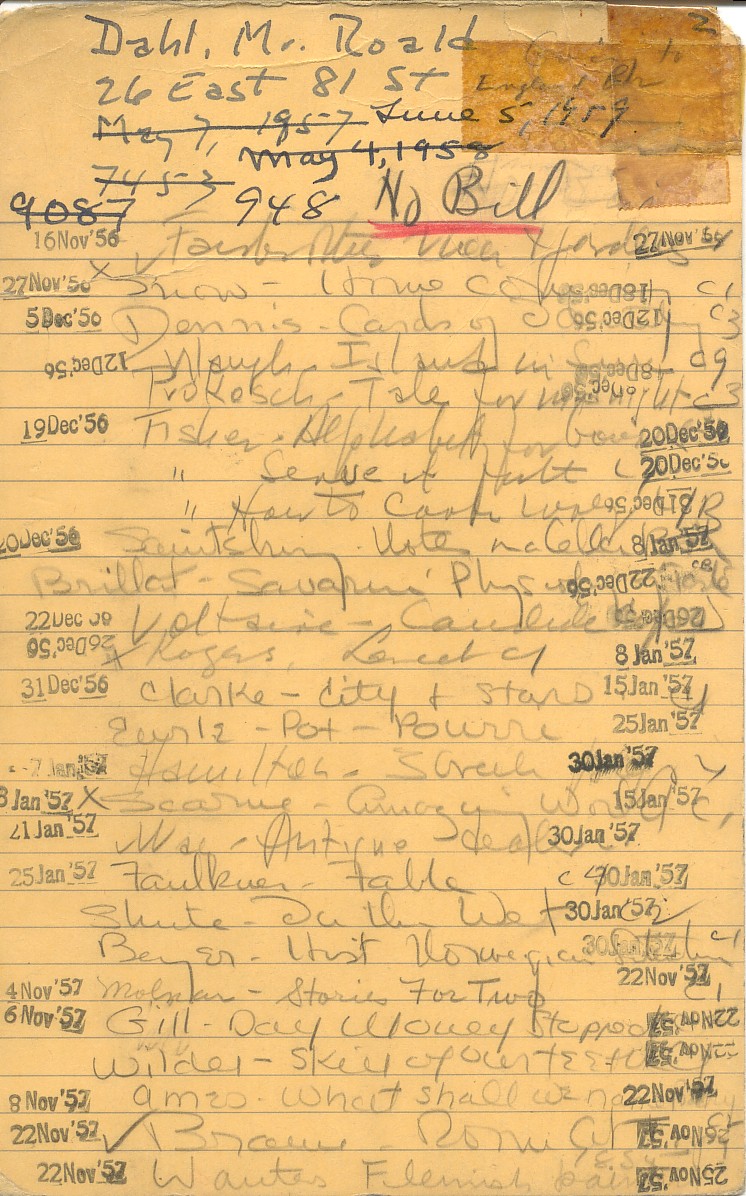 2
Dahl, Mr. Roald
26 East 81 St
England
May 7, 1957 June 5, 1959
May 4, 1958
7453
9087 948 No Bill
16Nov'56 27Nov'56
27Nov'56 X Snow - Home 18Dec'56 C1
5Dec'56 Dennis - Cards of 12Dec'56 C3
12Dec'56 Waugh - Island in 18Dec'56 C9
Prokosch - Tale for midnight C3
19Dec'56 Fisher - Alphabet for 20Dec'56
" Serve it forth 20Dec'56
" How to Cook Wolf 31Dec'56
20Dec'56 Saintsbury - Notes on Cellar Bk 8Jan'57
Brillat-Savarin Phys of Taste 22Dec'56
22Dec'56 Voltaire - Candide 26Dec'56
26Dec'56 X Rogers, 8Jan'57
31Dec'56 Clarke - City & Stars 15Jan'57
- Pot-Pourri 25Jan'57
7Jan'57 Hamilton - 30Jan'57
8Jan'57 X Scarne - Amazing World 15Jan'57
21Jan'57 - Antique dealer 30Jan'57
25Jan'57 Faulkner - Fable C4 30Jan'57
Shute - In the Wet 30Jan'57
Beyer - Hist Norwegian 30Jan'57 C1
22Nov'57
4Nov'57 Molnar - Stories For Two C1
6Nov'57 Gill - Day Money Stopped 22Nov'57
Wilder - Skin of our teeth 22Nov'57
8Nov'57 Ames - What shall we name 22Nov'57
22Nov'57 Braine Room at 26Nov'57
22Nov'57 Wauters Flemish 25Nov'57